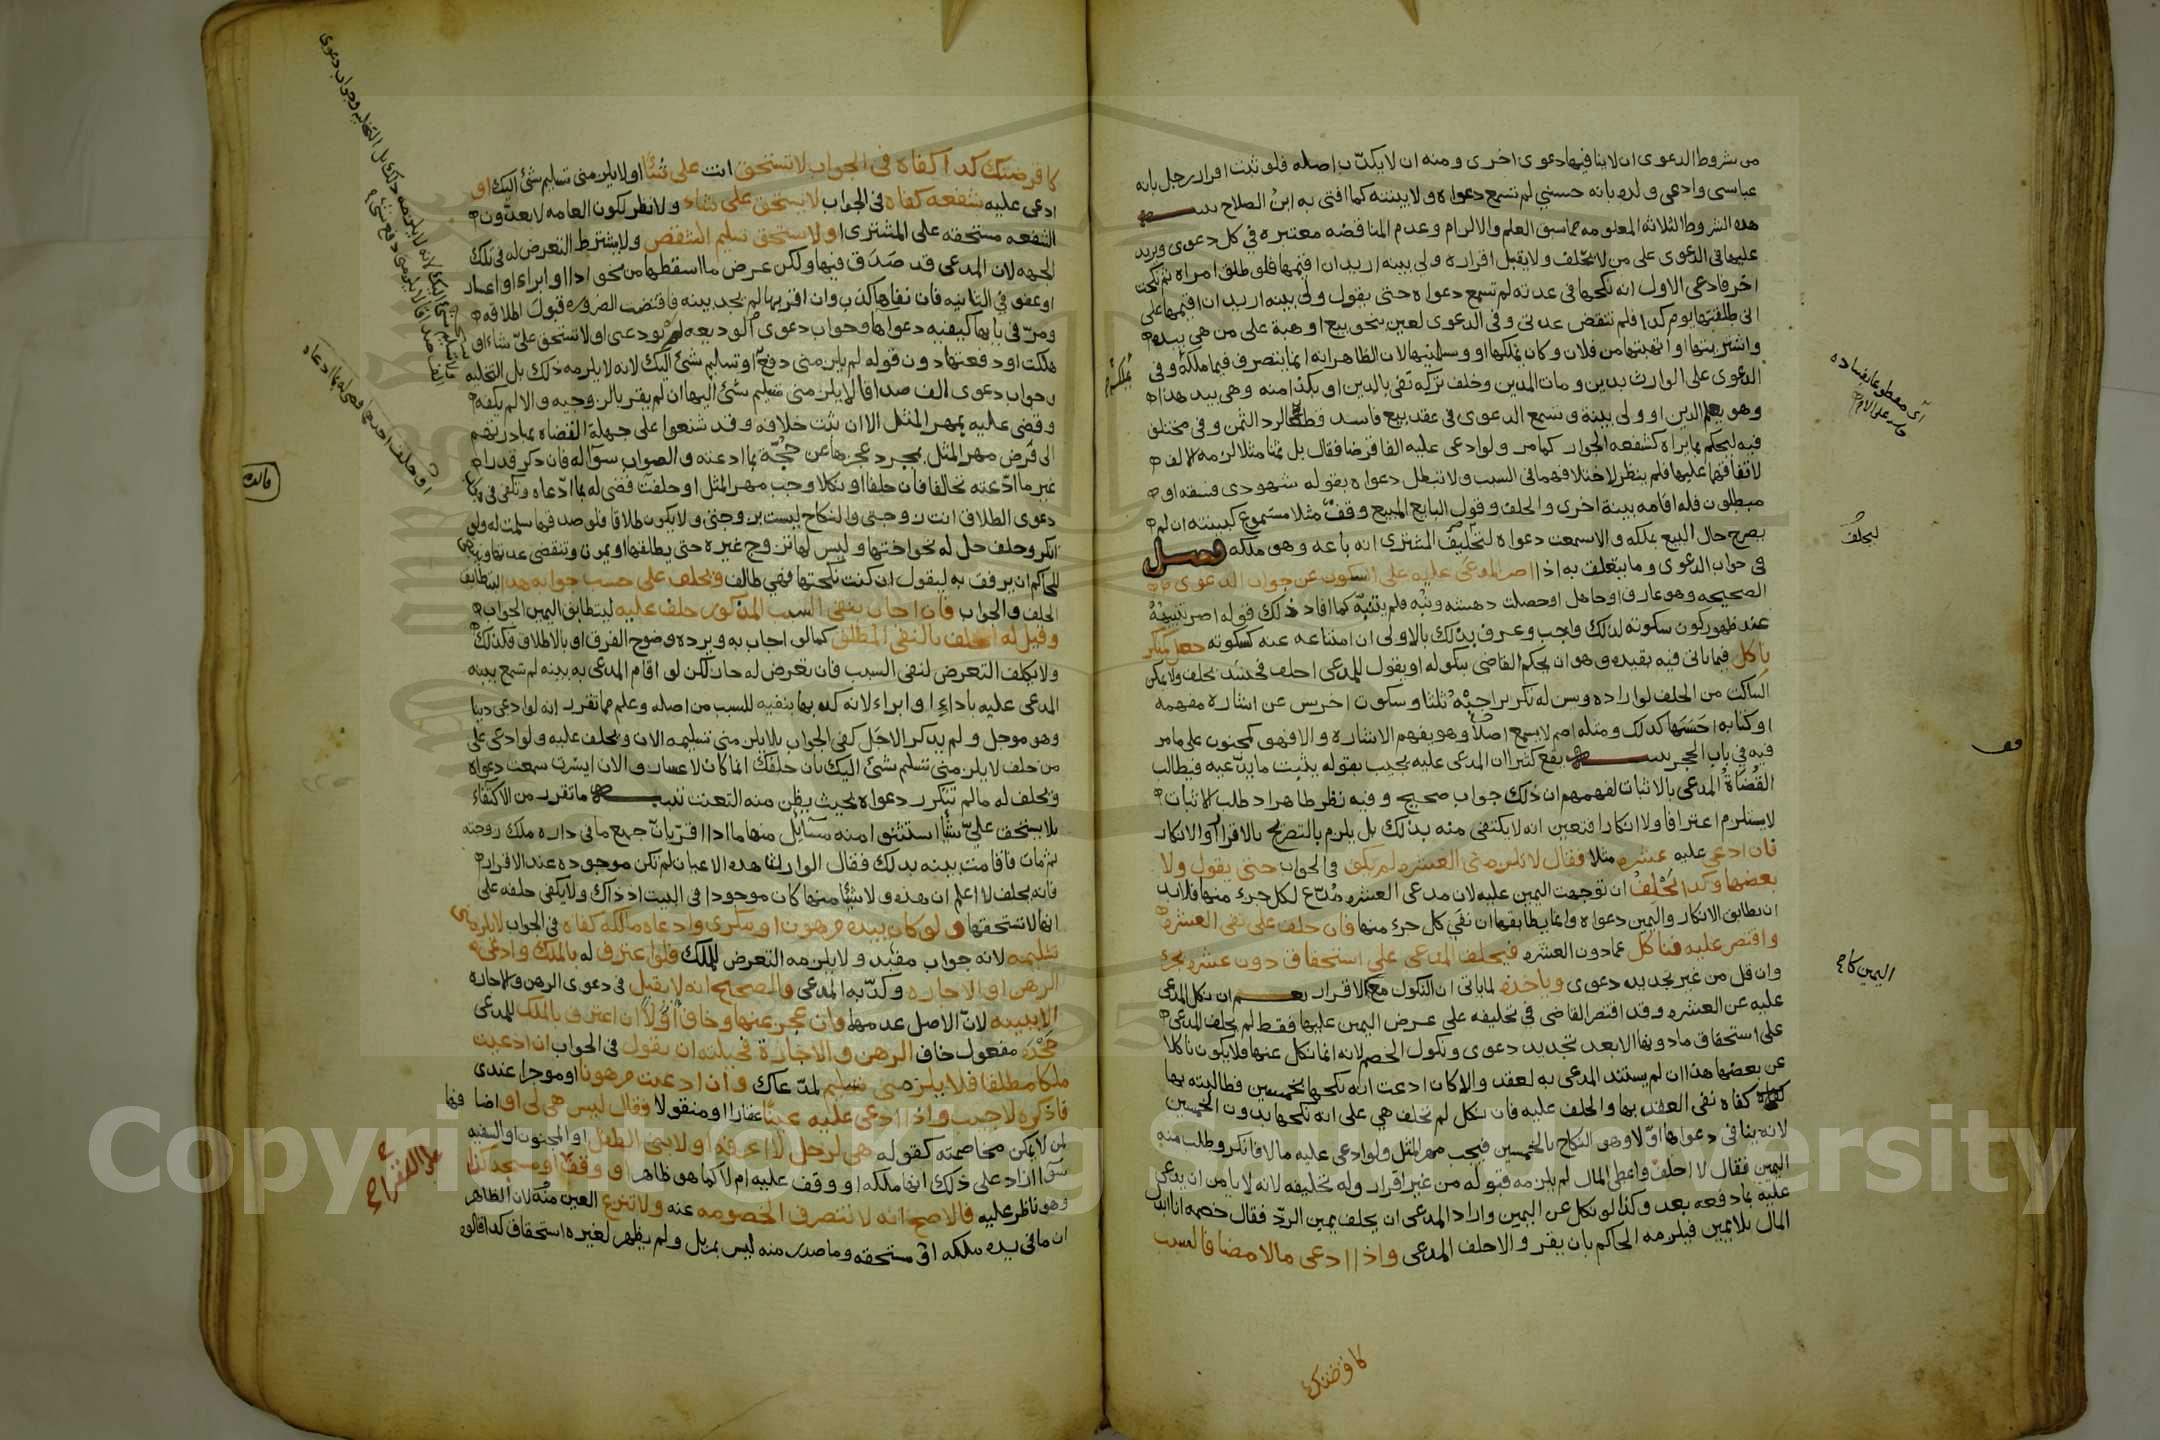 من شروط الدعوى ان لا ينافيها دعوى اخرى ومنه ان لا يكذب اصله فلو ثبت اقرار رجل بانه
عباسي وادعى ولده بانه حسيني لم تسمع دعواه ولا بينته كما افتى به ابن الصلاح
هذه الشروط الثلاثة المعلومه مما سبق العلم والالزام وعدم المناقضه معتبره في كل دعوى ويزيد
عليها في الدعوى على من لا يحلف ولا يقبل اقراره ولي بينه اريد ان اقيمها فلو طلق امراة ثم نكحت
اخر فادعى الاول انه نكحها في عدته لم تسمع دعواه حتى يقول ولي بينه اريد ان اقيمها على
اني طلقتها يوم كذا فلم تنقض عدتي وفي الدعوى لعين بنحو بيع او هبة على من هي بيده
واشتريتها او اتهبتها من فلان وكان يملكها او وسلمنيها لان الظاهر انه انما يتصرف فيما ملكه وفي
الدعوى على الوارث بدين ومات المدين وخلف تركه تفي بالدين او بكذا منه وهي بيد هذا
وهو يعلم الدين او ولي بينة وتسمع الدعوى في عقد بيع فاسد قطعا لرد الثمن وفي مختلف
فيه ليحكم بما يراه كشفعه الجوار كما مر ولو ادعى عليه الفا قرضا فقال بل ثمنا مثلا لزمه الالف
لاتفاقهما عليها فلم ينظر لاختلافهما في السبب ولا تبطل دعواه بقوله شهودي فسقه او
مبطلون فله اقامه بينة اخرى والحلف وقول البايع المبيع وقف مثلا مسموع كبينته ان لم
يصرح حال البيع بملكه والا سمعت دعواه لتحليف المشتري انه باعه وهو ملكه فصل
في جواب الدعوى وما يتعلق به اذا اصر المدعى عليه على السكوت عن جواب الدعوى
الصحيحه وهو عارف او جاهل او حصلت دهشته ونبه فلم يتنبه كما افاد ذلك قوله اصر تنبيهه
عند ظهور كون سكوته لذلك واجب وعرف بذلك بالاولى ان امتناعه عنه كسكوته جعل كمنكر
ناكل فيما ياتي فيه بقيده وهو ان يحكم القاضي بنكوله او يقول للمدعى احلف فحينئذ يحلف ولا يمكن
الساكت من الحلف لو اراده ويسن له تكرير اجبه ثلثا وسكوت اخرس عن اشاره مفهمه
او كتابه احسنها كذلك ومثله اصم لا يسمع اصلا وهو يفهم الاشاره والا فهو كمجنون على ما مر
فيه في باب الحجر يقع كثيرا ان المدعى عليه يجيب بقوله يثبت ما يدعيه فيطالب
القضاة المدعى بالاثبات لفهمهم ان ذلك جواب صحيح وفيه نظر ظاهر اذ طلب الاثبات
لا يستلزم اعترافا ولا انكارا فتعين انه لا يكتفى منه بذلك بل يلزم بالتصريح بالاقرار او الانكار
فان ادعى عليه عشره مثلا فقال لا تلزمني العشره لم يكف في الجواب حتى يقول ولا
بعضها وكذا يحلف ان توجهت اليمين عليه لان مدعى العشره مدع لكل جزء منها فلابد
ان يطابق الانكار واليمين دعواه وانما يطابقها ان نفى كل جزء منها فان حلف على نفي العشره
واقتصر عليه فناكل عما دون العشره فيحلف المدعي على استحقاق دون عشره بجزء
وان قل من غير تجديد دعوى وياخذه لما ياتي ان النكول مع الاقرار نعم ان نكل المدعى
عليه عن العشره وقد اقتصر القاضي في تحليفه على عرض اليمين عليها فقط لم يحلف المدعي
على استحقاق ما دونها الا بعد تجديد دعوى ونكول الخصم لانه انما نكل عنها فلا يكون ناكلا
عن بعضها هذا ان لم يستند المدعى به لعقد والا كان ادعت انه نكحها بخمسين فطالبته بها
كفاه نفي العقد بها والحلف عليه فان نكل لم تحلف هي على انه نكحها بدون الخمسين
لانه ينافي دعواها اولا وهو النكاح بالخمسين فيجب مهر المثل ولو ادعى عليه مالا فانكر وطلب منه
اليمين فقال لا احلف واعطى المال لم يلزمه قبوله من غير اقرار وله تحليفه لانه لا يامن ان يدعي
عليه بما دفعه بعد وكذا لو نكل عن اليمين واراد المدعى ان يحلف يمين الرد فقال خصمه انا ابذل
المال بلا يمين فيلزمه الحاكم بان يقر والا حلف المدعى واذا ادعى مالا مضافا لسبب
كاقرضتك
اي مقطوعا بفساده
ليحلف
اليمين كاح
كاقرضتك كذا كفاه في الجواب لا تستحق انت على شيئا او لا يلزمني تسليم شئ اليك او
ادعى عليه شفعه كفاه في الجواب لا يستحق على شياء ولا نظر لكون العامه لا يعدون
الشفعه مستحقه على المشتري او لا تستحق تسليم الشقص ولا يشترط التعرض له في تلك
الجهه لان المدعي قد صدق فيها ولكن عرض ما اسقطها من نحو اداا او ابراء او اعسار
او عفو في الثانيه فان نفاها كذب وان اقر بها لم يجد بينه فاقتضت الضروره قبول اطلاقه
ومر في بابها كيفيه دعواها وجواب دعوى الوديعه لم تودعني او لا تستحق علي شاء او
هلكت او دفعتها دون قوله لم يلزمني دفع او تسليم شئ اليك لانه لا يلزمه ذلك بل التخليه
وجواب دعوى الف صداقا لا يلزمني تسليم شئ اليها ان لم يقر بالزوجيه والا لم يكفه
وقضى عليه بمهر المثل الا ان ثبت خلافه وقد شنعوا على جهلة القضاه بمبادرتهم
الى فرض مهر المثل بمجرد عجزها عن حجة بما ادعته والصواب سؤاله فان ذكر قدرا
غير ما ادعته تحالفا فان حلفا او نكلا وجب مهر المثل او حلفت قضى له بما ادعاه ويكفي في جواب
دعوى الطلاق انت زوجتي والنكاح ليست بزوجتي ولا يكون طلاقا فلو صدقها سلمت له ولو
انكر وحلف حل له نحو اختها وليس لها تزوج غيره حتى يطلقها او يموت وتنقضي عدتها وينبغي
للحاكم ان يرفق به ليقول ان كنت نكحتها فهي طالق ويحلف على حسب جوابه هذا ليتطابق
الحلف والجواب فان اجاب بنفي السبب المذكور حلف عليه ليتطابق اليمين الجواب
وقيل له الحلف بالنفي المطلق كما لو اجاب به ويرده وضوح الفرق او بالاطلاق فكذلك
ولا يكلف التعرض لنفي السبب فان تعرض له جاز لكن لو اقام المدعي به بينه لم تسمع بينه
المدعى عليه باداء او ابراء لانه كذبها بنفيه للسبب من اصله وعلم مما تقرر انه لو ادعى دينا
وهو موجل ولم يذكر الاجل كفى الجواب بلا يلزمني تسليمه الان ويحلف عليه ولو ادعى على
من حلف لا يلزمني تسليم شئ اليك بان حلفك انما كان لاعسارك والان ايسرت سمعت دعواه
ويحلف له ما لم تتكرر دعواه بحيث يظن منه التعنت تنبيه ما تقرر من الاكتفاء
بلا يستحق علي شيأ استثنوا منه مسائل منها ما اذا اقر بان جميع ما في داره ملك زوجته
ثم مات فاقامت بينه بذلك فقال الوارث هذه الاعيان لم تكن موجوده عند الاقرار
فانه يحلف لا اعلم ان هذه ولا شيأ منها كان موجودا في البيت اذ ذاك ولا يكفي حلفه على
انها لا تستحقها ولو كان بيده مرهون او مكرى وادعاه مالكه كفاه في الجواب لا يلزمني
تسليمه لانه جواب مفيد ولا يلزمه التعرض للملك فلو اعترف له بالملك وادعى
الرهن او الاجاره وكذبه المدعي والصحيح انه لا يقبل في دعوى الرهن والاجاره
الا ببينه لان الاصل عدمها وان عجز عنها وخاف اولا ان اعترف بالملك للمدعي
جحده مفعول خاف الرهن والاجارة فحيلته ان يقول في الجواب ان ادعيت
ملكا مطلقا فلا يلزمني تسليم لمدعاك وان ادعيت مرهونا او موجرا عندي
فاذكره لاجيب واذا ادعى عليه عينا عقارا او منقولا فقال ليس هي لي او اضافها
لمن لا يمكن مخاصمته كقوله هي لرجل لا اعرفه او لابني الطفل او المجنون او السفيه
سوا ازاد على ذلك انها ملكه او وقف عليه ام لا كما هو ظاهر او وقف او مسجد كذا
وهو ناظر عليه فالاصح انه لا تنصرف الخصومه عنه ولا تنزع العين منه لان الظاهر
ان ما في يده ملكه او مستحقه وما صدر منه ليس بمزيل ولم يظهر لغيره استحقاق كذا قالوه
فائده
على الفقراء